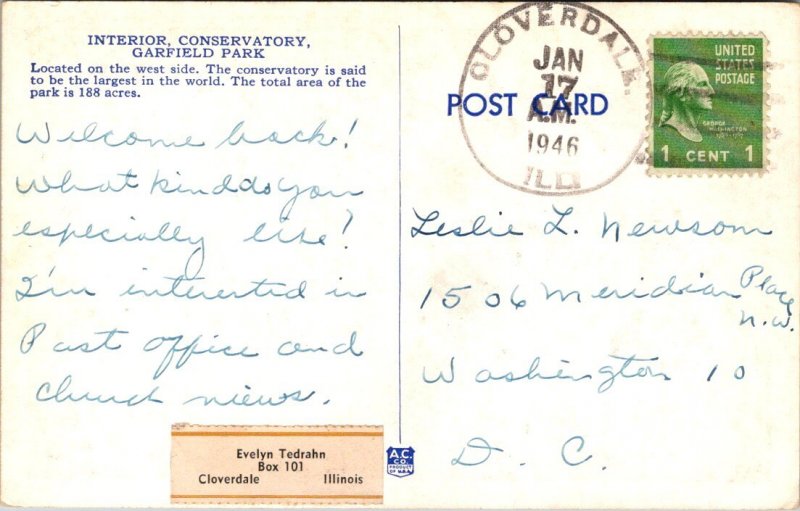 INTERIOR, CONSERVATORY,
GARFIELD PARK
Located on the west side. The conservatory is said
to be the largest in the world. The total area of the
park is 188 acres.
Welcome back!
What kind do you
especially like?
I'm interested in
Post office and
church views.
Evelyn Tedrahn
Box 101
Cloverdale Illinois
A.C.
CO.
PRODUCT
OF U.S.A.
POST CARD
CLOVERDALE,
JAN
17
A.M.
1946
ILL
UNITED
STATES
POSTAGE
GEORGE
WASHINGTON
1 CENT 1
Leslie L. Newsom
1506 Meridian Place
N.W.
Washington 10
D. C.